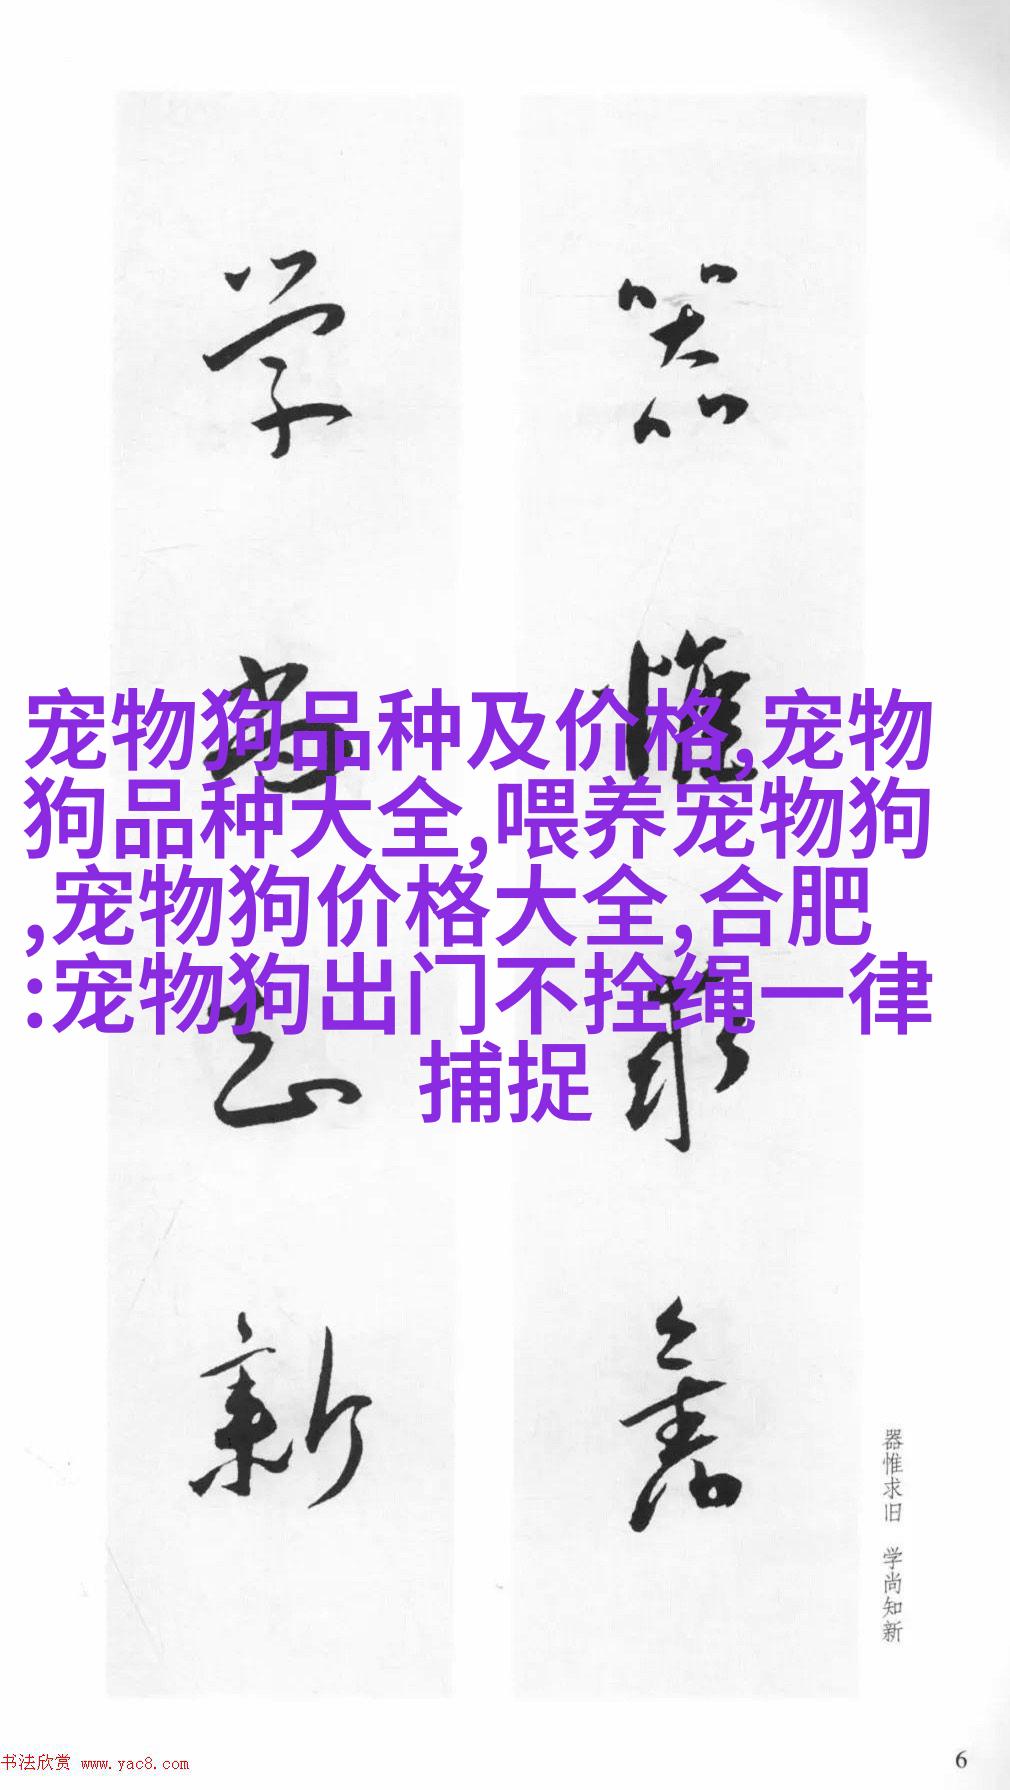 器惟求舊
学尚知新
宠物狗品种及价格,宠物
狗品种大全,喂养宠物狗
,宠物狗价格大全,合肥
:宠物狗出门不拴绳一律
捕捉
器惟求旧 学尚知新
书法欣赏 www.yac8.com
6